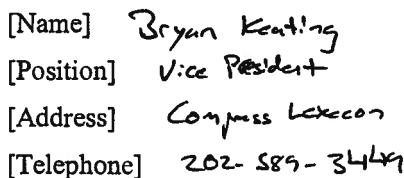 [Name] Bryan Keating
[Position] Vice President
[Address] Compass Lexecon
[Telephone] 202-589-3449